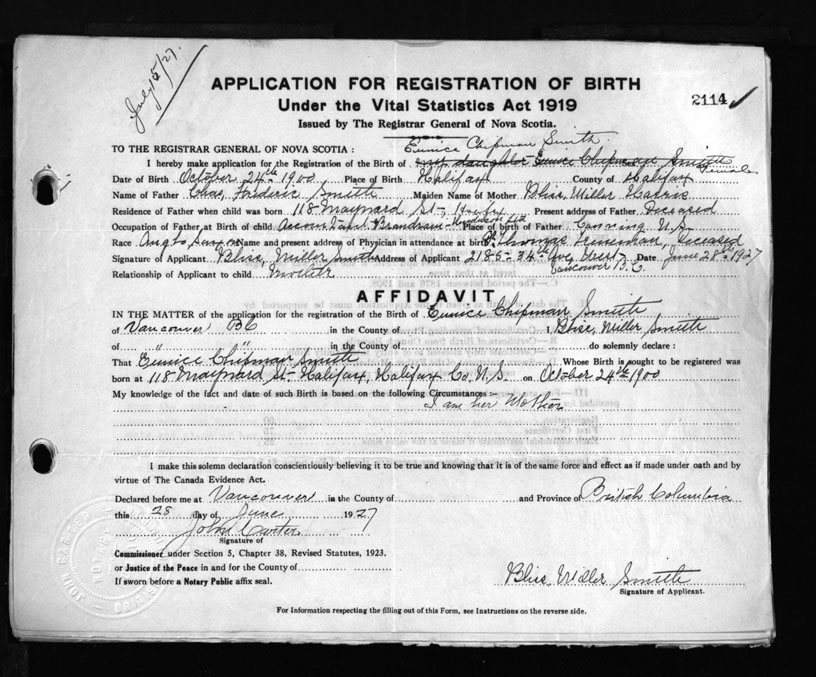 July 15/27.
APPLICATION FOR REGISTRATION OF BIRTH
Under the Vital Statistics Act 1919
2114
Issued by The Registrar General of Nova Scotia.
TO THE REGISTRAR GENERAL OF NOVA SCOTIA : Eunice Chipman Smith.
I hereby make application for the Registration of the Birth of first daughter Eunice Chipman Smith Female
Date of Birth October 24th 1900 Place of Birth Halifax County of Halifax
Name of Father Chas, Frederic Smith Maiden Name of Mother Bliss Miller Harris
Residence of Father when child was born 118 Maynard St-, Present address of Father Deceased
Occupation of Father at Birth of child Brandram Henderson Ltd Place of birth of Father Canning N.S.
Race Anglo Saxon Name and present address of Physician in attendance at birth Thomas deceased
Signature of Applicant Bliss, Miller Smith Address of Applicant 2185-34th Ave West Vancouver B.C. Date June 28th 1927
Relationship of Applicant to child Mother
AFFIDAVIT
IN THE MATTER of the application for the registration of the Birth of Eunice Chipman Smith
of Vancouver BC in the County of I, Bliss, Miller Smith
of " " in the County of do solemnly declare :
That Eunice Chipman Smith Whose Birth is sought to be registered was
born at 118 Maynard St- Halifax, Halifax Co, N.S. on October 24th 1900
My knowledge of the fact and date of such Birth is based on the following Circumstances :-
I am her Mother
I make this solemn declaration conscientiously believing it to be true and knowing that it is of the same force and effect as if made under oath and by
virtue of The Canada Evidence Act.
Declared before me at Vancouver in the County of and Province of British Columbia
this 28 day of June 1927
John Carter
Signature of
Commissioner under Section 5, Chapter 38, Revised Statutes, 1923.
or Justice of the Peace in and for the County of
If sworn before a Notary Public affix seal.
Bliss, Miller Smith
Signature of Applicant.
For Information respecting the filling out of this Form, see Instructions on the reverse side.